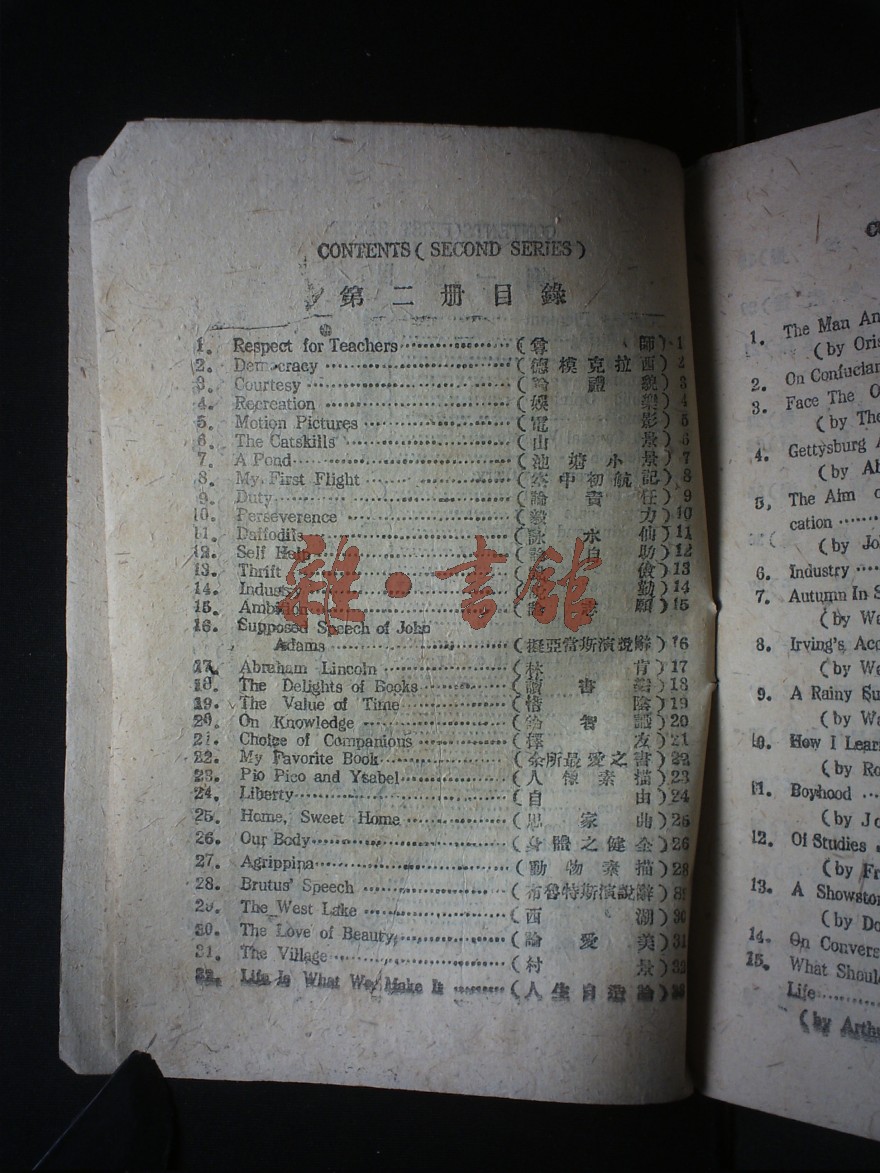 CONTENTS ( SECOND SERIES )
第二册目錄
1. Respect for Teachers (尊師) 1
2. Democracy (德模克拉西) 2
3. Courtesy (論禮貌) 3
4. Recreation (娛樂) 4
5. Motion Pictures (電影) 5
6. The Catskills (山景) 6
7. A Pond (池塘小景) 7
8. My First Flight (空中初航記) 8
9. Duty (論責任) 9
10. Perseverence (毅力) 10
11. Daffodils (詠水仙) 11
12. Self Help (論自助) 12
13. Thrift 儉) 13
14. Industry 勤) 14
15. Ambition (論志願) 15
16. Supposed Speech of John
Adams (擬亞當斯演說辭) 16
17. Abraham Lincoln (林肯) 17
18. The Delights of Books (讀書樂) 18
19. The Value of Time (惜陰) 19
20. On Knowledge (論智識) 20
21. Choice of Companious (擇友) 21
22. My Favorite Book (余所最愛之書) 22
23. Pio Pico and Ysabel (人像素描) 23
24. Liberty (自由) 24
25. Home, Sweet Home (思家曲) 25
26. Our Body (身體之健全) 26
27. Agrippina (動物素描) 28
28. Brutus' Speech (布魯特斯演說辭)
29. The West Lake (西湖) 30
30. The Love of Beauty (論愛美) 31
31. The Village (村景) 32
32. Life Is What We Make It (人生自造論)
雜·書館
1. The Man An
(by Oris
2. On Confucian
3. Face The O
(by The
4. Gettysburg A
(by Ab
5, The Aim o
cation
(by Jo
6. Industry
7. Autumn In S
(by Wa
8. Irving's Acc
(by We
9. A Rainy Su
(by Wa
10. How I Learn
(by Ro
11. Boyhood
(by Jo
12. Of Studies
(by Fr
13. A Showston
(by Do
14. On Convers
15. What Shoul
Life
(by Arthu